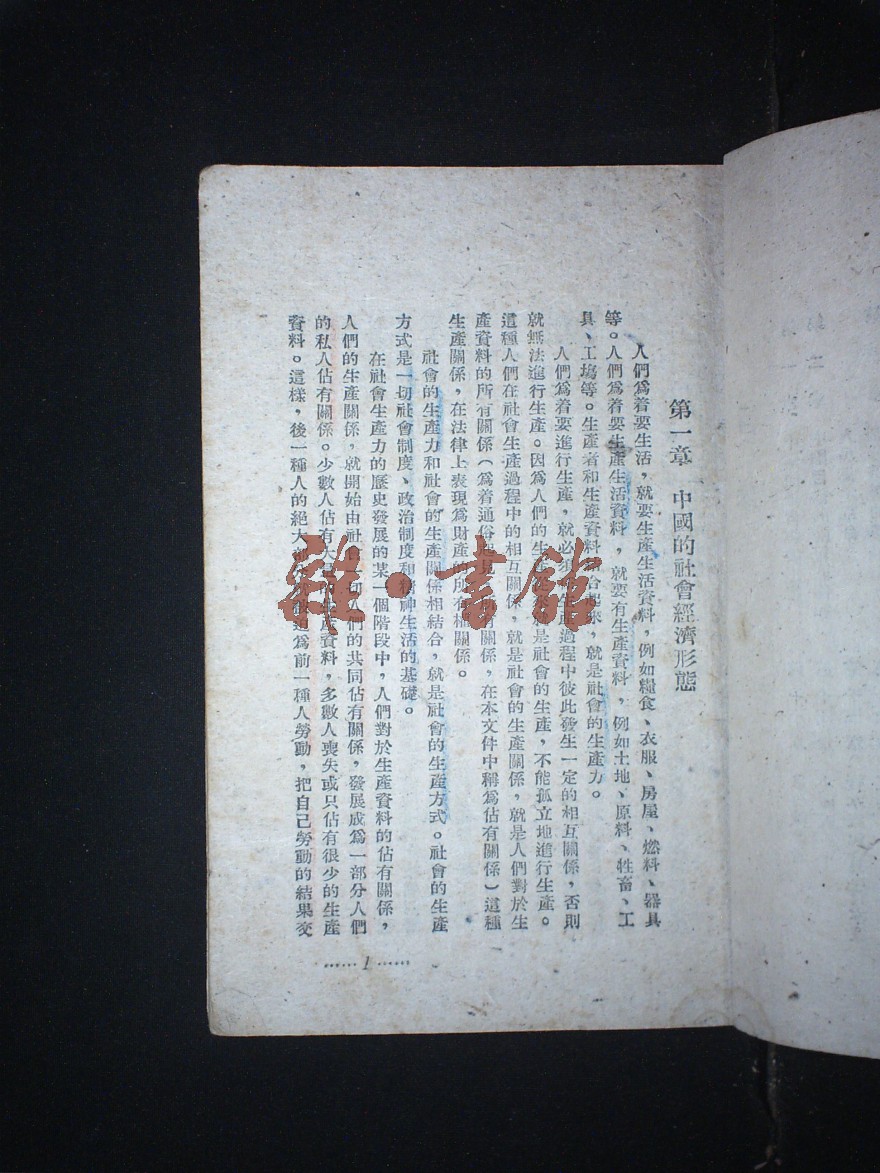 第一章 中國的社會經濟形態
人們爲着要生活，就要生產生活資料，例如糧食、衣服、房屋、燃料、器具
等。人們爲着要生產生活資料，就要有生產資料，例如土地、原料、牲畜、工
具、工塲等。生產者和生產資料結合起來，就是社會的生產力。
人們爲着要進行生產，就必須 過程中彼此發生一定的相互關係，否則
就無法進行生產。因爲人們的生 是社會的生產，不能孤立地進行生產。
這種人們在社會生產過程中的相互關係，就是社會的生產關係，就是人們對於生
產資料的所有關係（爲着通俗 有關係，在本文件中稱爲佔有關係）這種
生產關係，在法律上表現爲財產的所有權關係。
社會的生產力和社會的生產關係相結合，就是社會的生產方式。社會的生產
方式是一切社會制度、政治制度和精神生活的基礎。
在社會生產力的歷史發展的某一個階段中，人們對於生產資料的佔有關係，
人們的生產關係，就開始由社會一切人們的共同佔有關係，發展成爲一部分人們
的私人佔有關係。少數人佔有大 資料，多數人喪失或只佔有很少的生產
資料。這樣，後一種人的絕大 爲前一種人勞動，把自己勞動的結果交
……1……
雜·書館